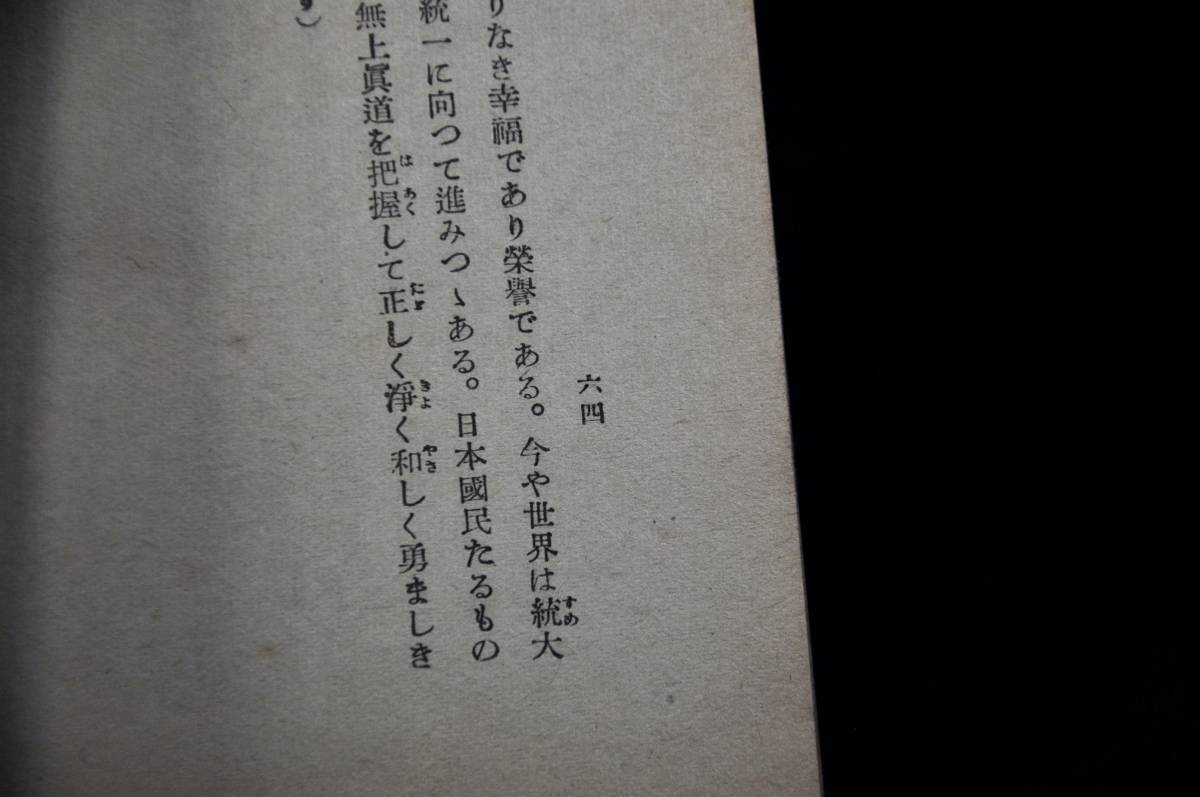 六四
りなき幸福であり榮譽である。今や世界は統大
統一に向つて進みつゝある。日本國民たるもの
無上眞道を把握して正しく淨く和しく勇ましき
)